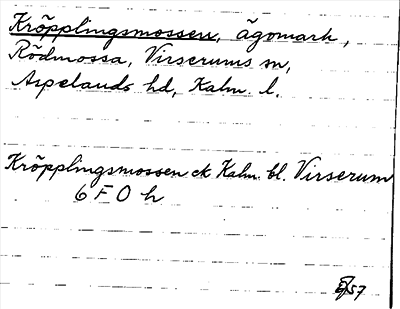 Kröpplingsmossen, ägomark,
Rödmossa, Virserums sn,
Aspelands hd, Kalm. l.
Kröpplingsmossen ek Kalm. bl. Virserum
6 F 0 h